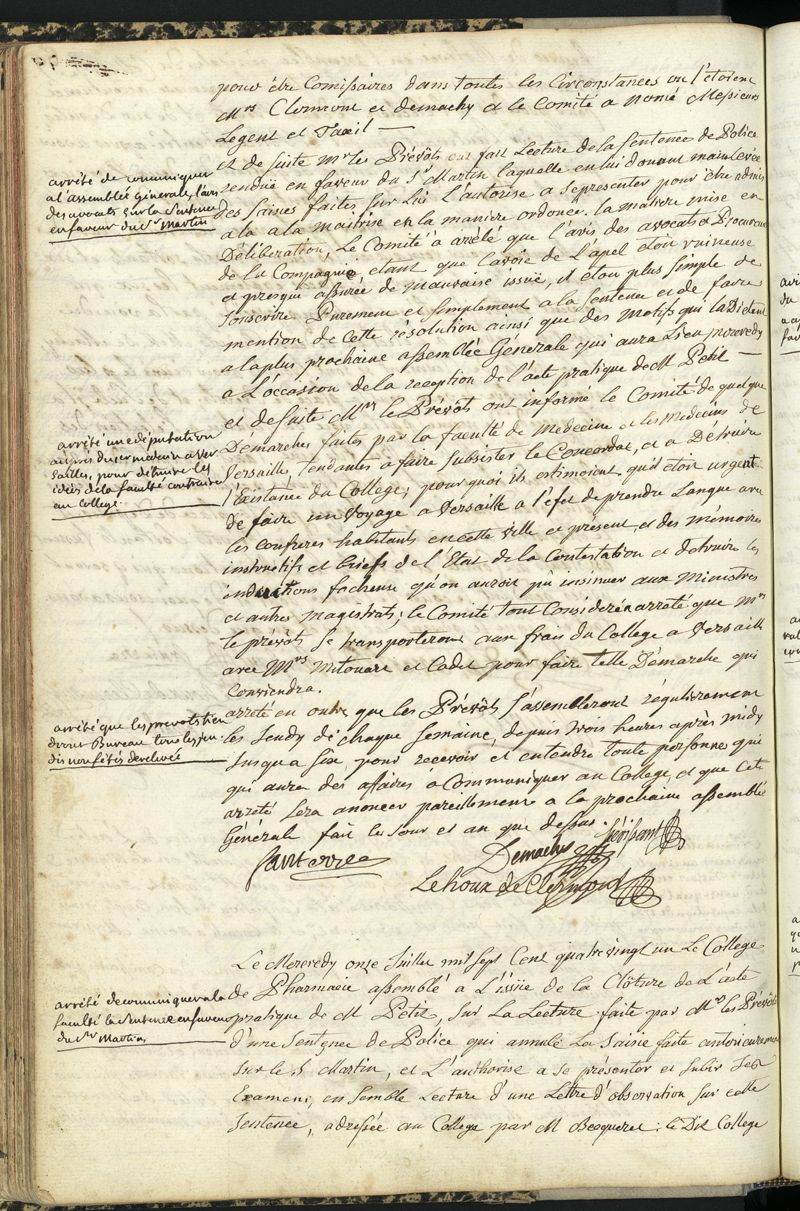 pour être Comissaires dans toutes les Circonstances ou l'étoient
Mrs Clermont et demachy et le Comité a nomé Messieurs
Legent et Taxil —
arrêté de comuniquer
a l'assemblée générale, l'avis
des avocats sur la Sentence
en faveur du Sr Martin
et de suite Mr les Prévôts ont fait Lecture de la Sentence de Police
renduë en faveur du Sr Martin laquelle en lui donant mainlevée
des saisies faites sur Lui L'autorise a se presenter pour être admis
a la a la maitrise en la maniere ordonée. la matiere mise en
Déliberation, Le Comité a arêté que l'avis des avocats et Procureur
de la Compagnie etant que la voie de L'apel etoit ruineuse
et presque assurée de mauvaise issuë, il etoit plus simple de
souscrire Purement et simplement a la Sentence et de faire
mention de cette résolution ainsi que des Motifs qui la Dictent
a la plus prochaine assemblée Générale qui aura Lieu mercredy
a L'occasion de la reception de l'acte pratique de M Petit —
arrêté une députation
auprès du ser mateur a Ver
sailles, pour détruire les
idées de la faculté contraires
au College.
et de suite Mrs les Prévôts ont informé le Comité de quelque
Demarches faites par la faculté de Medecine et les Medecins de
Versailles, tendantes a faire subsister le Concordat, et a Détruire
l'Existance du College; pourquoi ils estimoient qu'il etoit urgent
de faire un Voyage a Versaille a l'éfet de prendre Langue avec
les confreres habitants en cette Ville et present, et des mémoires
instructifs et briefs de l'Etat de la Contestation et détruire les
inductions facheuse qu'on auroit pu insinuer aux Ministres
et autres magistrats; le Comité tout Consideré a arreté que Mrs
le prévôts se transporteront aux frais du College a Versaille
avec Mrs Mitouart et Cadet pour faire telle Démarche qui
Conviendra.
arrêté que les prevots tien
dront Bureau tous les jeu-
dis non fêtés de relevée
arreté en outre que les Prévôts s'assembleront régulierement
les Jeudy de chaque Semaine, depuis trois heures après midy
Jusqu'a six, pour recevoir et entendre toute personnes qui
qui aura des affaires a Communiquer au College, et que cete
arreté sera anoncer pareillement a la prochaine assemblée
Générale fait les jour et an que dessus.
Santerre Demachy Hérissant
Le houx de Clermont
arrêté de comuniquer a la
faculté la Sentence en faveur
du Sr Martin
Le Mercredy onze Juillet mil sept Cent quatre vingt un Le College
de Pharmacie assemblé à L'issüe de la Clôture de L'acte
pratique de M Petit, sur La Lecture faite par Mrs les Prévôts
d'une Sentence de Police qui annule La Saisie faite antérieurement
sur le S Martin, et L'authorise a se présenter et subir ses
Examens, ensemble Lecture d'une Lettre d'observation sur cette
Sentence, adressée au College par M Becqueret: le Dit College